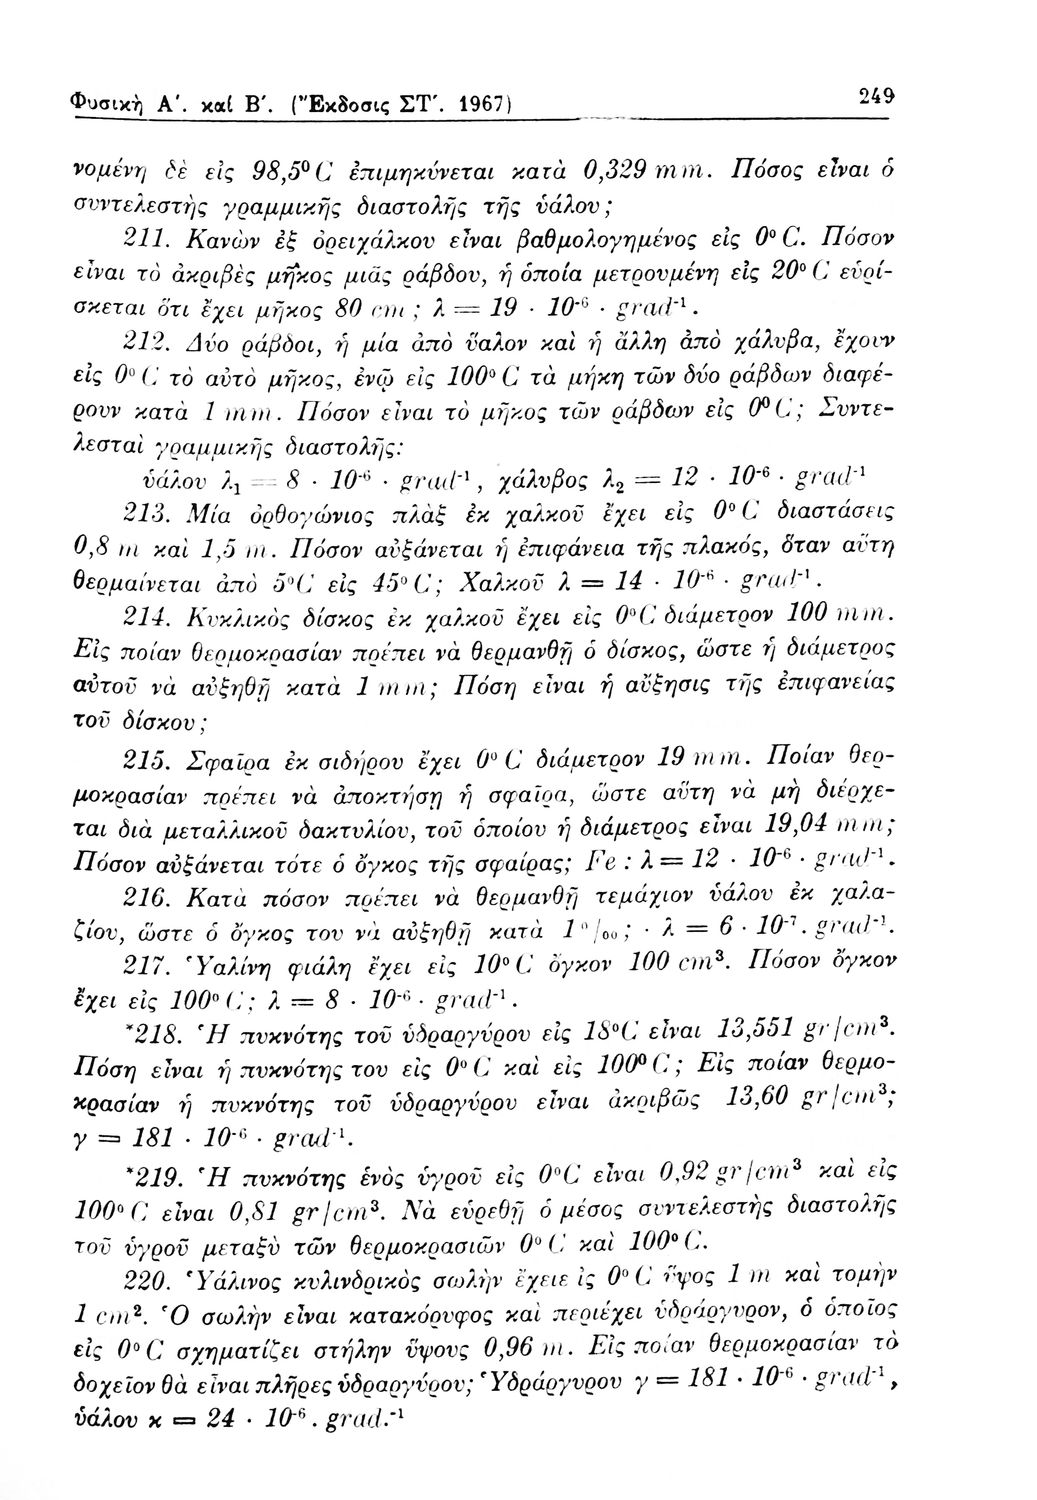 Φυσικὴ Α΄. καὶ Β΄. (Ἔκδοσις ΣΤ΄. 1967) 249
νομένη δὲ εἰς 98,5⁰ C ἐπιμηκύνεται κατὰ 0,329 mm. Πόσος εἶναι ὁ
συντελεστὴς γραμμικῆς διαστολῆς τῆς ὑάλου;
211. Κανὼν ἐξ ὀρειχάλκου εἶναι βαθμολογημένος εἰς 0⁰ C. Πόσον
εἶναι τὸ ἀκριβὲς μῆκος μιᾶς ράβδου, ἡ ὁποία μετρουμένη εἰς 20⁰ C εὑρί-
σκεται ὅτι ἔχει μῆκος 80 cm ; λ = 19 · 10⁻⁶ · grad⁻¹ .
212. Δύο ράβδοι, ἡ μία ἀπὸ ὕαλον καὶ ἡ ἄλλη ἀπὸ χάλυβα, ἔχουν
εἰς 0⁰ C τὸ αὐτὸ μῆκος, ἐνῷ εἰς 100⁰ C τὰ μήκη τῶν δύο ράβδων διαφέ-
ρουν κατὰ 1 mm. Πόσον εἶναι τὸ μῆκος τῶν ράβδων εἰς 0⁰ C; Συντε-
λεσταὶ γραμμικῆς διαστολῆς:
ὑάλου λ₁ = 8 · 10⁻⁶ · grad⁻¹ , χάλυβος λ₂ = 12 · 10⁻⁶ · grad⁻¹
213. Μία ὀρθογώνιος πλὰξ ἐκ χαλκοῦ ἔχει εἰς 0⁰ C διαστάσεις
0,8 m καὶ 1,5 m. Πόσον αὐξάνεται ἡ ἐπιφάνεια τῆς πλακός, ὅταν αὕτη
θερμαίνεται ἀπὸ 5⁰C εἰς 45⁰ C; Χαλκοῦ λ = 14 · 10⁻⁶ · grad⁻¹ .
214. Κυκλικὸς δίσκος ἐκ χαλκοῦ ἔχει εἰς 0⁰C διάμετρον 100 mm.
Εἰς ποίαν θερμοκρασίαν πρέπει νὰ θερμανθῇ ὁ δίσκος, ὥστε ἡ διάμετρος
αὐτοῦ νὰ αὐξηθῇ κατὰ 1 mm; Πόση εἶναι ἡ αὔξησις τῆς ἐπιφανείας
τοῦ δίσκου;
215. Σφαῖρα ἐκ σιδήρου ἔχει 0⁰ C διάμετρον 19 mm. Ποίαν θερ-
μοκρασίαν πρέπει νὰ ἀποκτήσῃ ἡ σφαῖρα, ὥστε αὕτη νὰ μὴ διέρχε-
ται διὰ μεταλλικοῦ δακτυλίου, τοῦ ὁποίου ἡ διάμετρος εἶναι 19,04 mm;
Πόσον αὐξάνεται τότε ὁ ὄγκος τῆς σφαίρας; Fe : λ = 12 · 10⁻⁶ · grad⁻¹ .
216. Κατὰ πόσον πρέπει νὰ θερμανθῇ τεμάχιον ὑάλου ἐκ χαλα-
ζίου, ὥστε ὁ ὄγκος του νὰ αὐξηθῇ κατὰ 1 ⁰/₀₀ ; · λ = 6 · 10⁻⁷ . grad⁻¹.
217. Ὑαλίνη φιάλη ἔχει εἰς 10⁰ C ὄγκον 100 cm³. Πόσον ὄγκον
ἔχει εἰς 100⁰ C; λ = 8 · 10⁻⁶ · grad⁻¹ .
*218. Ἡ πυκνότης τοῦ ὑδραργύρου εἰς 18⁰C εἶναι 13,551 gr/cm³.
Πόση εἶναι ἡ πυκνότης του εἰς 0⁰ C καὶ εἰς 100⁰ C ; Εἰς ποίαν θερμο-
κρασίαν ἡ πυκνότης τοῦ ὑδραργύρου εἶναι ἀκριβῶς 13,60 gr/cm³;
γ = 181 · 10⁻⁶ · grad⁻¹.
*219. Ἡ πυκνότης ἑνὸς ὑγροῦ εἰς 0⁰C εἶναι 0,92 gr/cm³ καὶ εἰς
100⁰ C εἶναι 0,81 gr/cm³. Νὰ εὑρεθῇ ὁ μέσος συντελεστὴς διαστολῆς
τοῦ ὑγροῦ μεταξὺ τῶν θερμοκρασιῶν 0⁰ C καὶ 100⁰ C.
220. Ὑάλινος κυλινδρικὸς σωλὴν ἔχειε ἰς 0⁰ C ὕψος 1 m καὶ τομὴν
1 cm². Ὁ σωλὴν εἶναι κατακόρυφος καὶ περιέχει ὑδράργυρον, ὁ ὁποῖος
εἰς 0⁰ C σχηματίζει στήλην ὕψους 0,96 m. Εἰς ποίαν θερμοκρασίαν τὸ
δοχεῖον θὰ εἶναι πλῆρες ὑδραργύρου; Ὑδράργυρου γ = 181 · 10⁻⁶ · grad⁻¹ ,
ὑάλου κ = 24 · 10⁻⁶ . grad.⁻¹